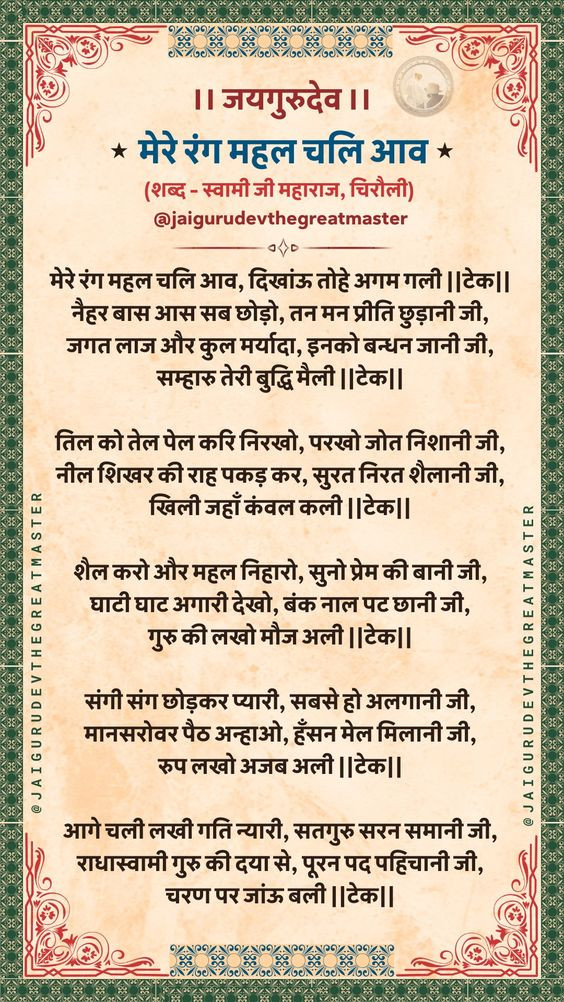 ।। जयगुरुदेव ।।
★ मेरे रंग महल चलि आव ★
(शब्द - स्वामी जी महाराज, चिरौली)
@jaigurudevthegreatmaster
मेरे रंग महल चलि आव, दिखांऊ तोहे अगम गली ||टेक||
नैहर बास आस सब छोड़ो, तन मन प्रीति छुड़ानी जी,
जगत लाज और कुल मर्यादा, इनको बन्धन जानी जी,
सम्हारु तेरी बुद्धि मैली ||टेक||
तिल को तेल पेल करि निरखो, परखो जोत निशानी जी,
नील शिखर की राह पकड़ कर, सुरत निरत शैलानी जी,
खिली जहाँ कंवल कली ||टेक||
शैल करो और महल निहारो, सुनो प्रेम की बानी जी,
घाटी घाट अगारी देखो, बंक नाल पट छानी जी,
गुरु की लखो मौज अली ||टेक||
संगी संग छोड़कर प्यारी, सबसे हो अलगानी जी,
मानसरोवर पैठ अन्हाओ, हँसन मेल मिलानी जी,
रुप लखो अजब अली ||टेक||
आगे चली लखी गति न्यारी, सतगुरु सरन समानी जी,
राधास्वामी गुरु की दया से, पूरन पद पहिचानी जी,
चरण पर जांऊ बली ||टेक||
@JAIGURUDEVTHEGREATMASTER
@JAIGURUDEVTHEGREATMASTER